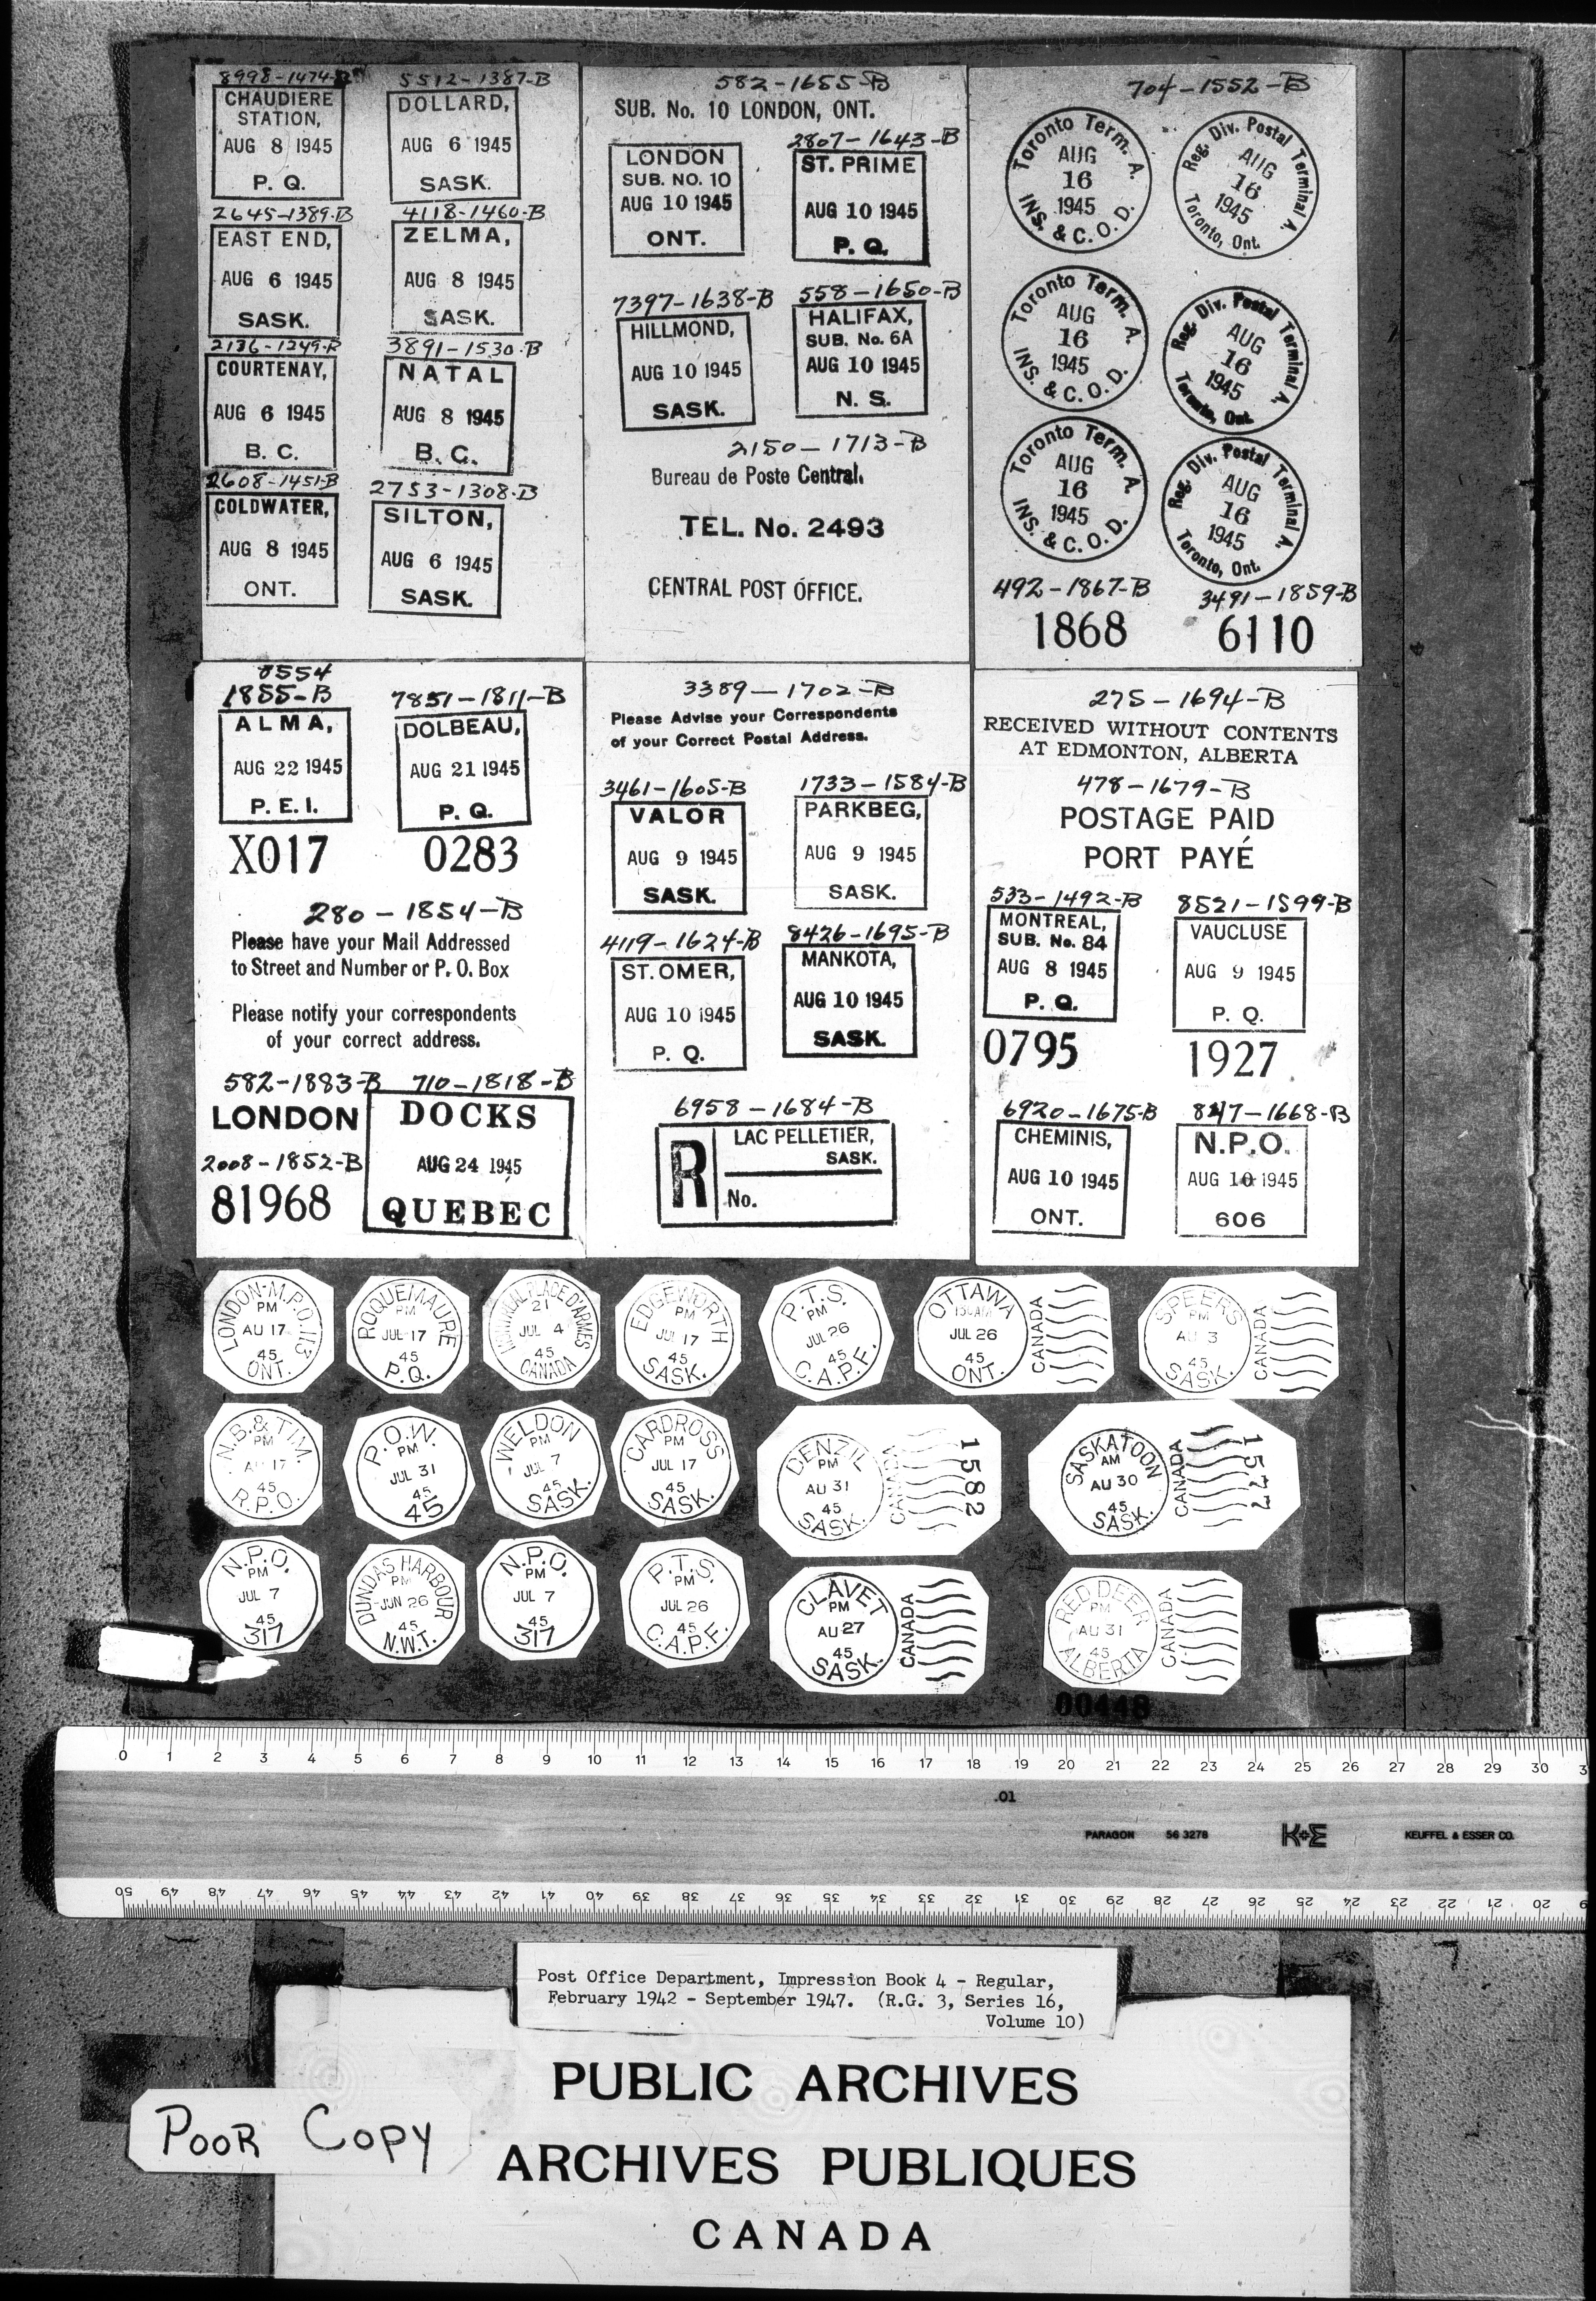 8998-1474-B
CHAUDIERE
STATION,
AUG 8 1945
P. Q.
5512-1387-B
DOLLARD,
AUG 6 1945
SASK.
2645-1389-B
EAST END,
AUG 6 1945
SASK.
4118-1460-B
ZELMA,
AUG 8 1945
SASK.
2136-1249-B
COURTENAY,
AUG 6 1945
B. C.
3891-1530-B
NATAL
AUG 8 1945
B. C.
2608-1451-B
COLDWATER,
AUG 8 1945
ONT.
2753-1308-B
SILTON,
AUG 6 1945
SASK.
582-1655-B
SUB. No. 10 LONDON, ONT.
LONDON
SUB. NO. 10
AUG 10 1945
ONT.
2807-1643-B
ST. PRIME
AUG 10 1945
P. Q.
7397-1638-B
HILLMOND,
AUG 10 1945
SASK.
558-1650-B
HALIFAX,
SUB. No. 6A
AUG 10 1945
N. S.
2150-1713-B
Bureau de Poste Central.
TEL. No. 2493
CENTRAL POST OFFICE.
704-1552-B
Toronto Term. A.
AUG
16
1945
INS. & C. O. D.
Reg. Div. Postal Terminal A.
AUG
16
1945
Toronto, Ont.
Toronto Term. A.
AUG
16
1945
INS. & C. O. D.
Reg. Div. Postal Terminal A.
AUG
16
1945
Toronto, Ont.
Toronto Term. A.
AUG
16
1945
INS. & C. O. D.
Reg. Div. Postal Terminal A.
AUG
16
1945
Toronto, Ont.
492-1867-B
1868
3491-1859-B
6110
8554
1855-B
ALMA,
AUG 22 1945
P. E. I.
X017
7851-1811-B
DOLBEAU,
AUG 21 1945
P. Q.
0283
280-1854-B
Please have your Mail Addressed
to Street and Number or P. O. Box
Please notify your correspondents
of your correct address.
582-1883-B
LONDON
2008-1852-B
81968
710-1818-B
DOCKS
AUG 24 1945
QUEBEC
3389-1702-B
Please Advise your Correspondents
of your Correct Postal Address.
3461-1605-B
VALOR
AUG 9 1945
SASK.
1733-1584-B
PARKBEG,
AUG 9 1945
SASK.
4119-1624-B
ST. OMER,
AUG 10 1945
P. Q.
8426-1695-B
MANKOTA,
AUG 10 1945
SASK.
6958-1684-B
R
LAC PELLETIER,
SASK.
No.
275-1694-B
RECEIVED WITHOUT CONTENTS
AT EDMONTON, ALBERTA
478-1679-B
POSTAGE PAID
PORT PAYÉ
533-1492-B
MONTREAL,
SUB. No. 84
AUG 8 1945
P. Q.
0795
8521-1599-B
VAUCLUSE
AUG 9 1945
P. Q.
1927
6920-1675-B
CHEMINIS,
AUG 10 1945
ONT.
847-1668-B
N.P.O.
AUG 10 1945
606
LONDON-M.P.O. 113
PM
AU 17
45
ONT.
ROQUEMAURE
PM
JUL 17
45
P.Q.
PLACE D'ARMES
21
JUL 4
45
CANADA
EDGEWORTH
PM
JUL 17
45
SASK.
P.T.S.
PM
JUL 26
45
C.A.P.F.
OTTAWA
JUL 26
45
ONT.
CANADA
SPEERS
PM
AU 3
45
SASK.
CANADA
N.B. & TIM.
PM
AU 17
45
R.P.O.
P.O.W.
PM
JUL 31
45
45
WELDON
PM
JUL 7
45
SASK.
CARDROSS
PM
JUL 17
45
SASK.
DENZIL
PM
AU 31
45
SASK.
CANADA
1582
SASKATOON
AM
AU 30
45
SASK.
CANADA
1577
N.P.O.
PM
JUL 7
45
317
DUNDAS HARBOUR
PM
JUN 26
45
N.W.T.
N.P.O.
PM
JUL 7
45
317
P.T.S.
PM
JUL 26
45
C.A.P.F.
CLAVET
PM
AU 27
45
SASK.
CANADA
RED DEER
PM
AU 31
45
ALBERTA
CANADA
00448
0 1 2 3 4 5 6 7 8 9 10 11 12 13 14 15 16 17 18 19 20 21 22 23 24 25 26 27 28 29 30
.01
PARAGON 56 3278 K+E KEUFFEL & ESSER CO.
50 49 48 47 46 45 44 43 42 41 40 39 38 37 36 35 34 33 32 31 30 29 28 27 26 25 24 23 22 21 20
Post Office Department, Impression Book 4 - Regular,
February 1942 - September 1947. (R.G. 3, Series 16,
Volume 10)
PUBLIC ARCHIVES
ARCHIVES PUBLIQUES
CANADA
POOR COPY